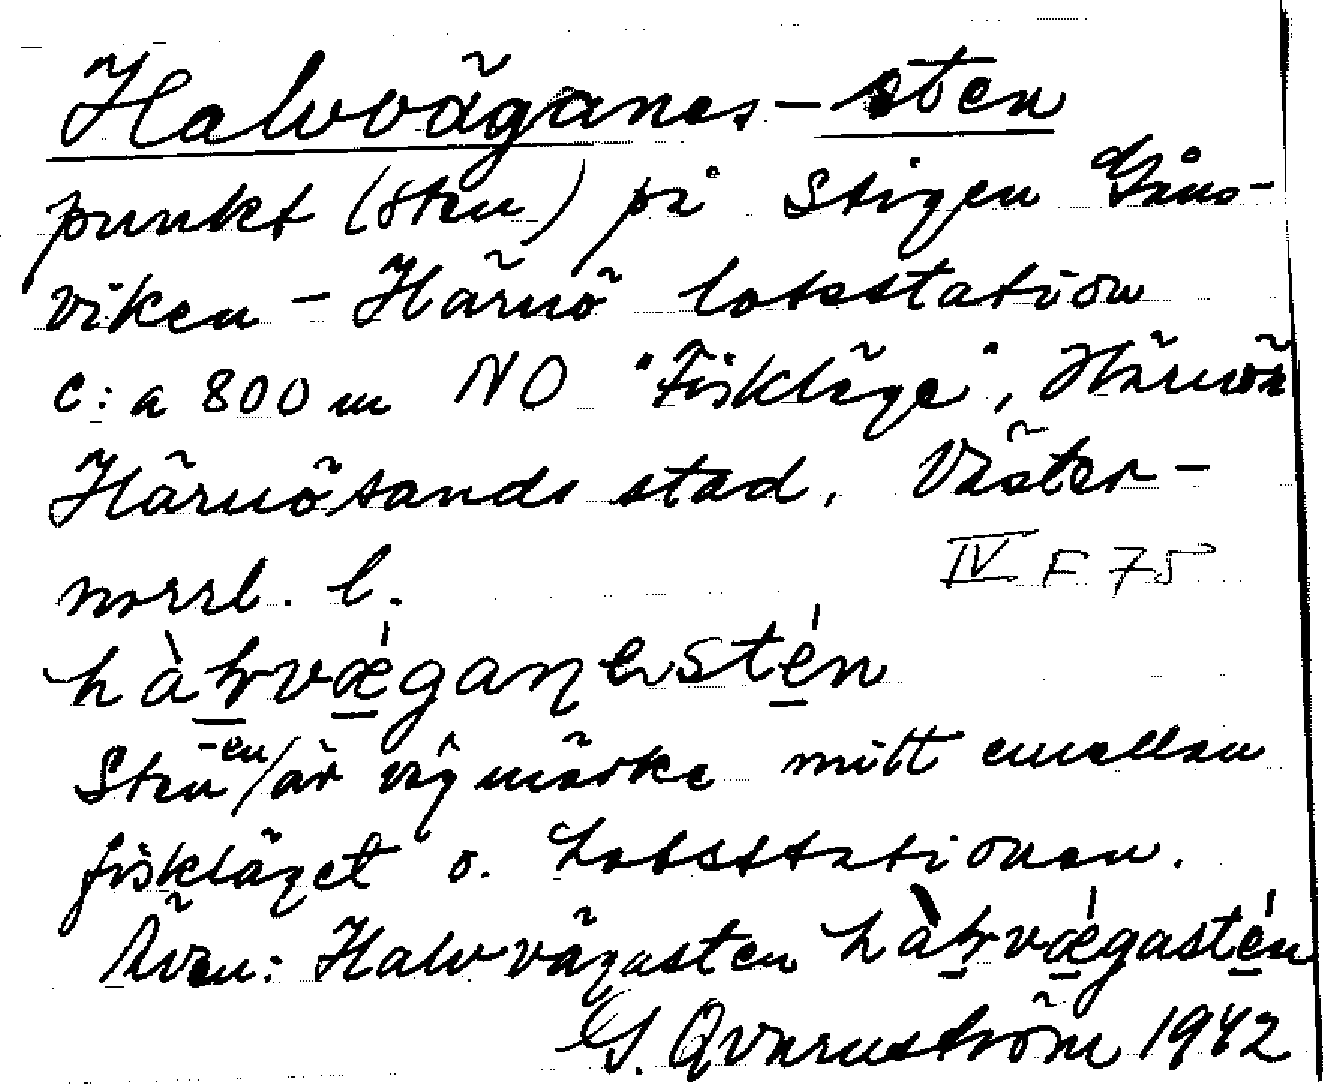 Halvväganes-sten
punkt (sten) på stigen Gåns-
viken - Härnö lotsstation
c:a 800 m NO "Fiskläge", Härnön
Härnösands stad, Väster-
norrl. l.
IV F 75
Sten -en/är vägmärke mitt emellan
fiskläget o. Lotsstationen.
Även: Halvvägasten
G. Qvarnström 1942